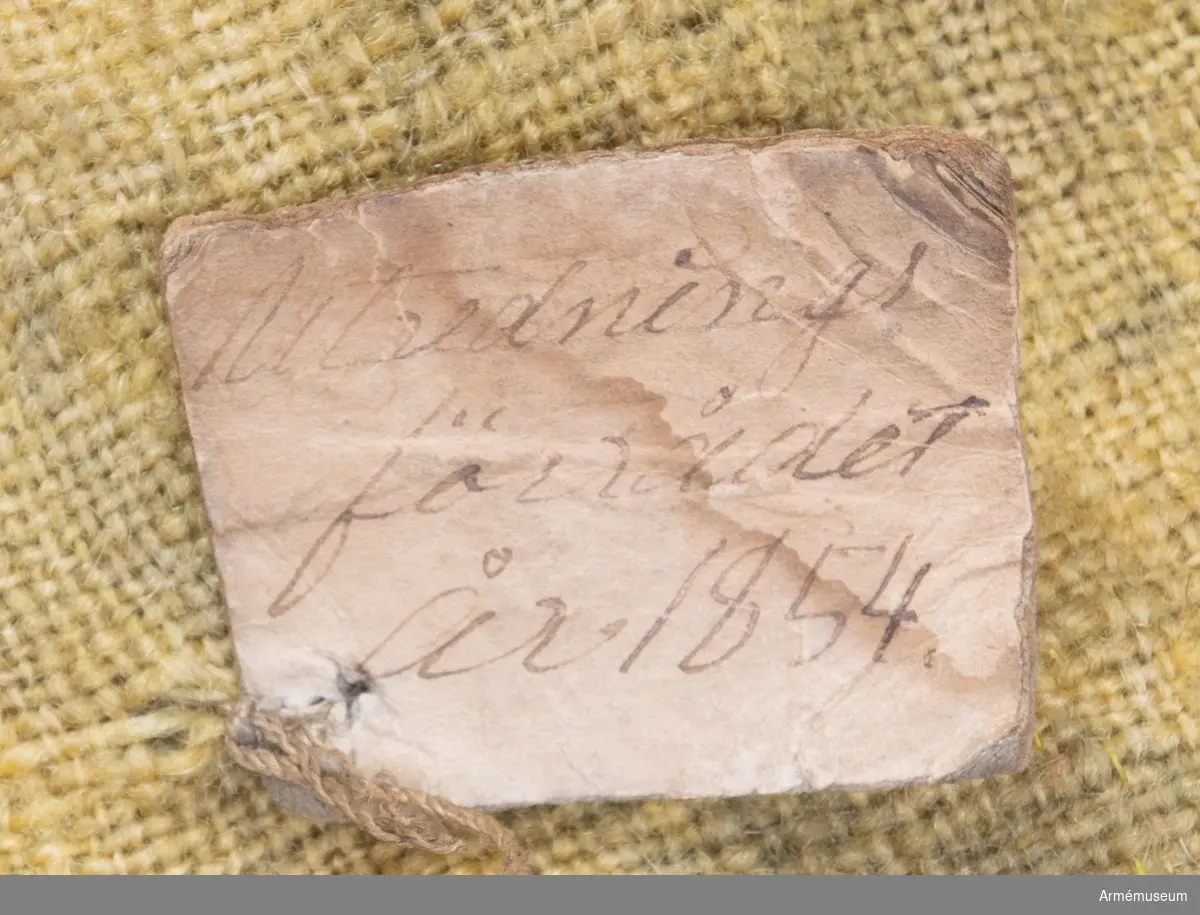 Utrednings
förrådet
år 1854.
Armémuseum